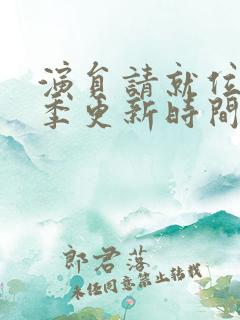 演員請就位
季更新時間
郎君落
未任同意禁止转载